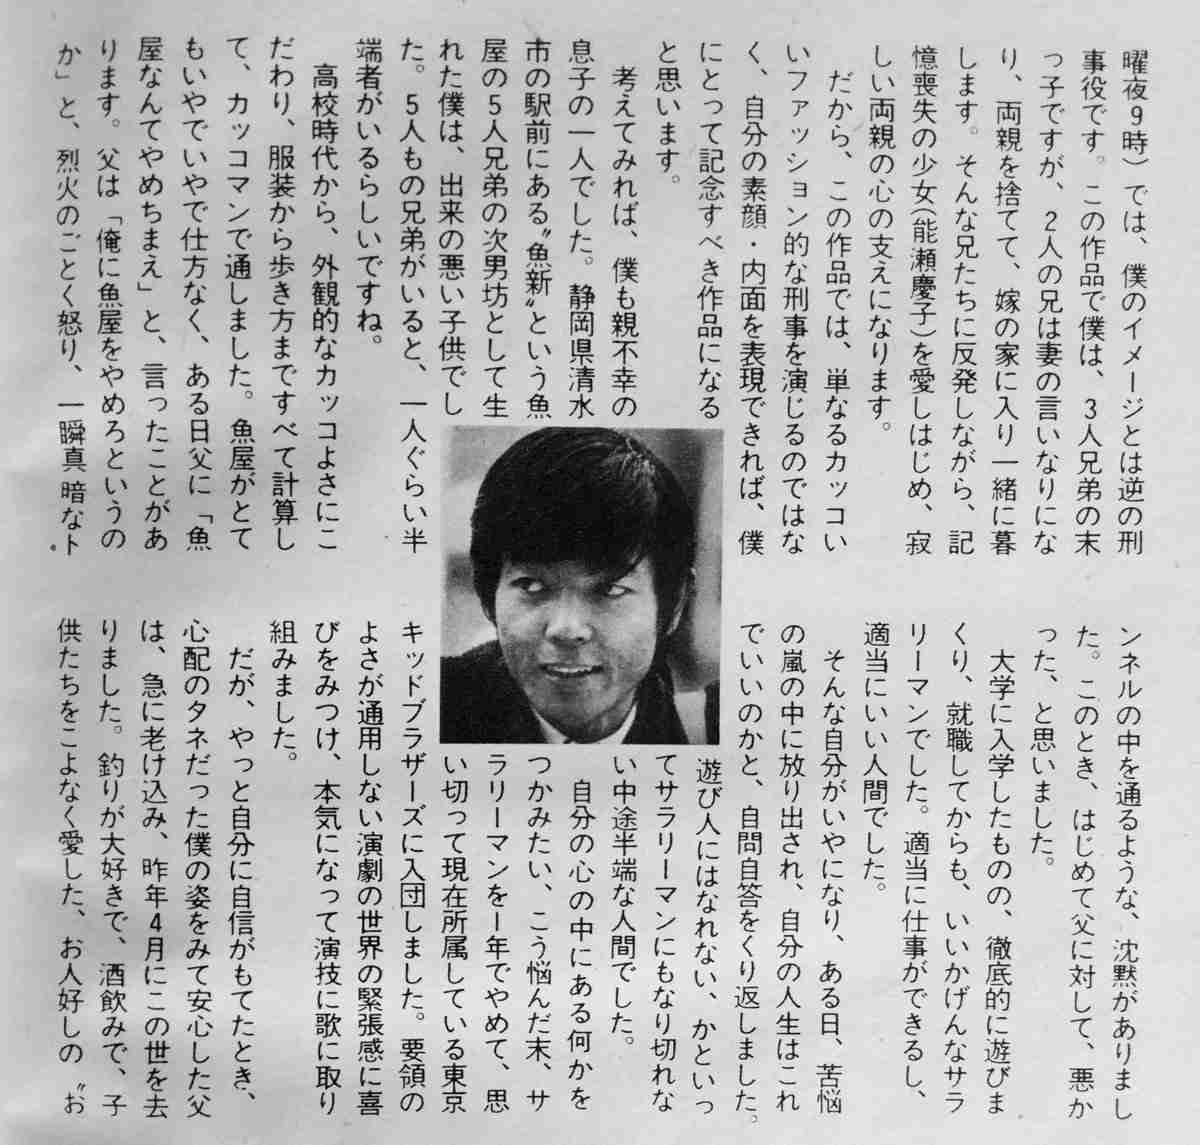 曜夜9時）では、僕のイメージとは逆の刑
事役です。この作品で僕は、3人兄弟の末
っ子ですが、2人の兄は妻の言いなりにな
り、両親を捨てて、嫁の家に入り一緒に暮
します。そんな兄たちに反発しながら、記
憶喪失の少女（能瀬慶子）を愛しはじめ、寂
しい両親の心の支えになります。
だから、この作品では、単なるカッコい
いファッション的な刑事を演じるのではな
く、自分の素顔・内面を表現できれば、僕
にとって記念すべき作品になる
と思います。
考えてみれば、僕も親不幸の
息子の一人でした。静岡県清水
市の駅前にある〝魚新〟という魚
屋の5人兄弟の次男坊として生
れた僕は、出来の悪い子供でし
た。5人もの兄弟がいると、一人ぐらい半
端者がいるらしいですね。
高校時代から、外観的なカッコよさにこ
だわり、服装から歩き方まですべて計算し
て、カッコマンで通しました。魚屋がとて
もいやでいやで仕方なく、ある日父に「魚
屋なんてやめちまえ」と、言ったことがあ
ります。父は「俺に魚屋をやめろというの
か」と、烈火のごとく怒り、一瞬真暗なト
ンネルの中を通るような、沈黙がありまし
た。このとき、はじめて父に対して、悪か
った、と思いました。
大学に入学したものの、徹底的に遊びま
くり、就職してからも、いいかげんなサラ
リーマンでした。適当に仕事ができるし、
適当にいい人間でした。
そんな自分がいやになり、ある日、苦悩
の嵐の中に放り出され、自分の人生はこれ
でいいのかと、自問自答をくり返しました。
遊び人にはなれない、かといっ
てサラリーマンにもなり切れな
い中途半端な人間でした。
自分の心の中にある何かを
つかみたい、こう悩んだ末、サ
ラリーマンを1年でやめて、思
い切って現在所属している東京
キッドブラザーズに入団しました。要領の
よさが通用しない演劇の世界の緊張感に喜
びをみつけ、本気になって演技に歌に取り
組みました。
だが、やっと自分に自信がもてたとき、
心配のタネだった僕の姿をみて安心した父
は、急に老け込み、昨年4月にこの世を去
りました。釣りが大好きで、酒飲みで、子
供たちをこよなく愛した、お人好しの〝お